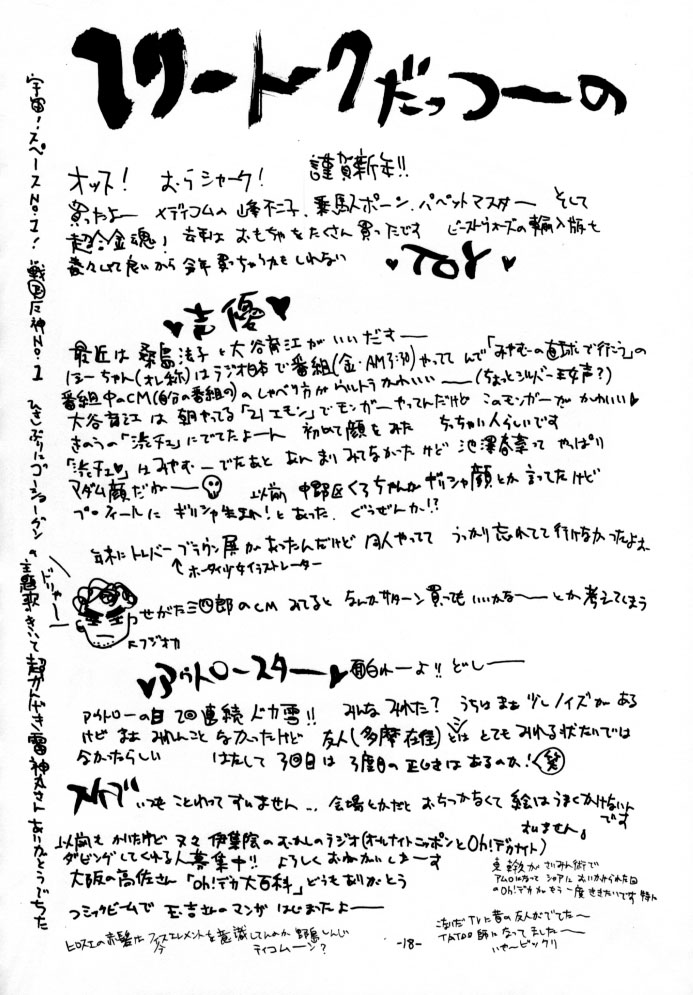 フリートークだっつーの
オッス! むらシャーク! 謹賀新年!!
買ったよー メディコムの峰不二子、乗馬スポーン、パペットマスター そして
超合金魂! 去年はおもちゃをたくさん買ったです ビーストウォーズの輸入版も
良いから今年買っちゃうかもしれない ♥TOY♥
♥声優♥
最近は桑島法子と大谷育江がいいだすー
ほーちゃん(オレ称)はラジオ日本で番組(金・AM3:30)やってんで「みやむーの直球で行こう」の
番組中のCM(自分の番組の)のしゃべり方がウルトラかわいいー(ちょっとシルバー王女声?)
大谷育江は朝やってる「21エモン」でモンガーやってんだけど このモンガーがかわいい♥
きのうの「渋チェ」にでてたよーん 初めて顔をみた ちっちゃい人らしいです
「渋チェ♥」はみやむーでたあと あんまりみてなかったけど 池澤春菜って やっぱり
マダム顔だがー 以前 中野区くろちゃんがギリシャ顔とか言ってたけど
プロフィールに ギリシャ生まれ!とあった、ぐうぜんか!?
年末にトレバー・ブラウン展があったんだけど 同人やってて うっかり忘れてて行けなかったよォ
↑ホータイ少女イラストレーター
ドリャー
せがた三四郎のCM みてると なんかサターン買ってもいいかなーとか考えてしまう
↖フジオカ
♥アウトロースター♥ 面白れーよ!! どしー
アウトローの日 2回連続ドカ雪!! みんなみれた? うちはまぁ少しノイズがある
けど まぁ みれんことなかったけど 友人(多摩在住)とは とてもみれる状たいでは
なかったらしい はたして3回目は3度目の正じきはあるのか!(笑)
スケブ いつもことわってすいません... 会場とかだと おちつかなくて絵はうまくかけないんです
すいません。
以前もかいたけど 又々 伊集院のむかしのラジオ(オールナイトニッポンとOh!デカナイト)
ダビングしてくれる人募集中!! よろしくおねがいしまーす
大阪の高佐さん「Oh!デカ大百科」どうもありがとう
のOh!デカがもう一度ききたいです
コミックビームで 玉吉さんのマンガ はじまったよー
ヒロスエの赤髪は フィフスエレメントを意識してんのか 野島しんじ
ティコムーン?
こないだTVに昔の友人がでてたー
TATOO師になってましたー
いやービックリ
-18-
宇宙!スペースNo.1! 戦国魔神No.1 ひさしぶりにゴーショーグンの主題歌きいて超かんげき雷神丸さんありがとうでちた